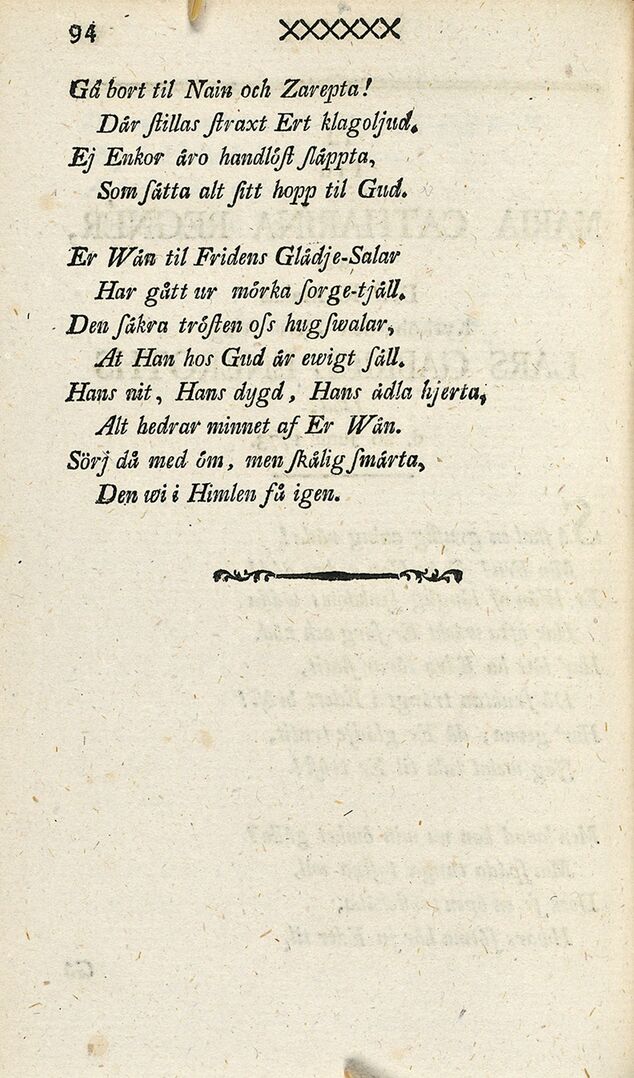 94 XXXXXX
Gå bort til Nain och Zarepta!
Där ſtillas ſtraxt Ert klagoljud.
Ej Enkor äro handlöſt ſläppta,
Som ſätta alt ſitt hopp til Gud.
Er Wän til Fridens Glädje-Salar
Har gått ur mörka ſorge-tjäll.
Den ſäkra tröſten oſs hugſwalar,
At Han hos Gud är ewigt ſäll.
Hans nit, Hans dygd, Hans ädla hjerta,
Alt hedrar minnet af Er Wän.
Sörj då med öm, men ſkälig ſmärta,
Den wi i Himlen få igen.